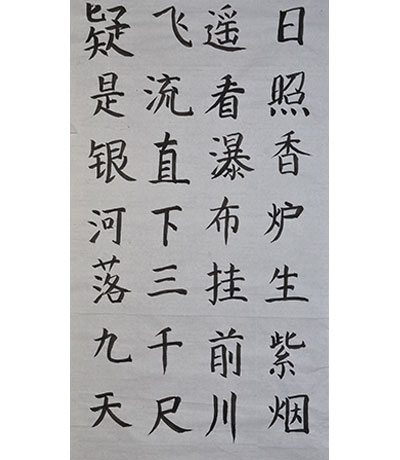 日照香炉生紫烟
遥看瀑布挂前川
飞流直下三千尺
疑是银河落九天